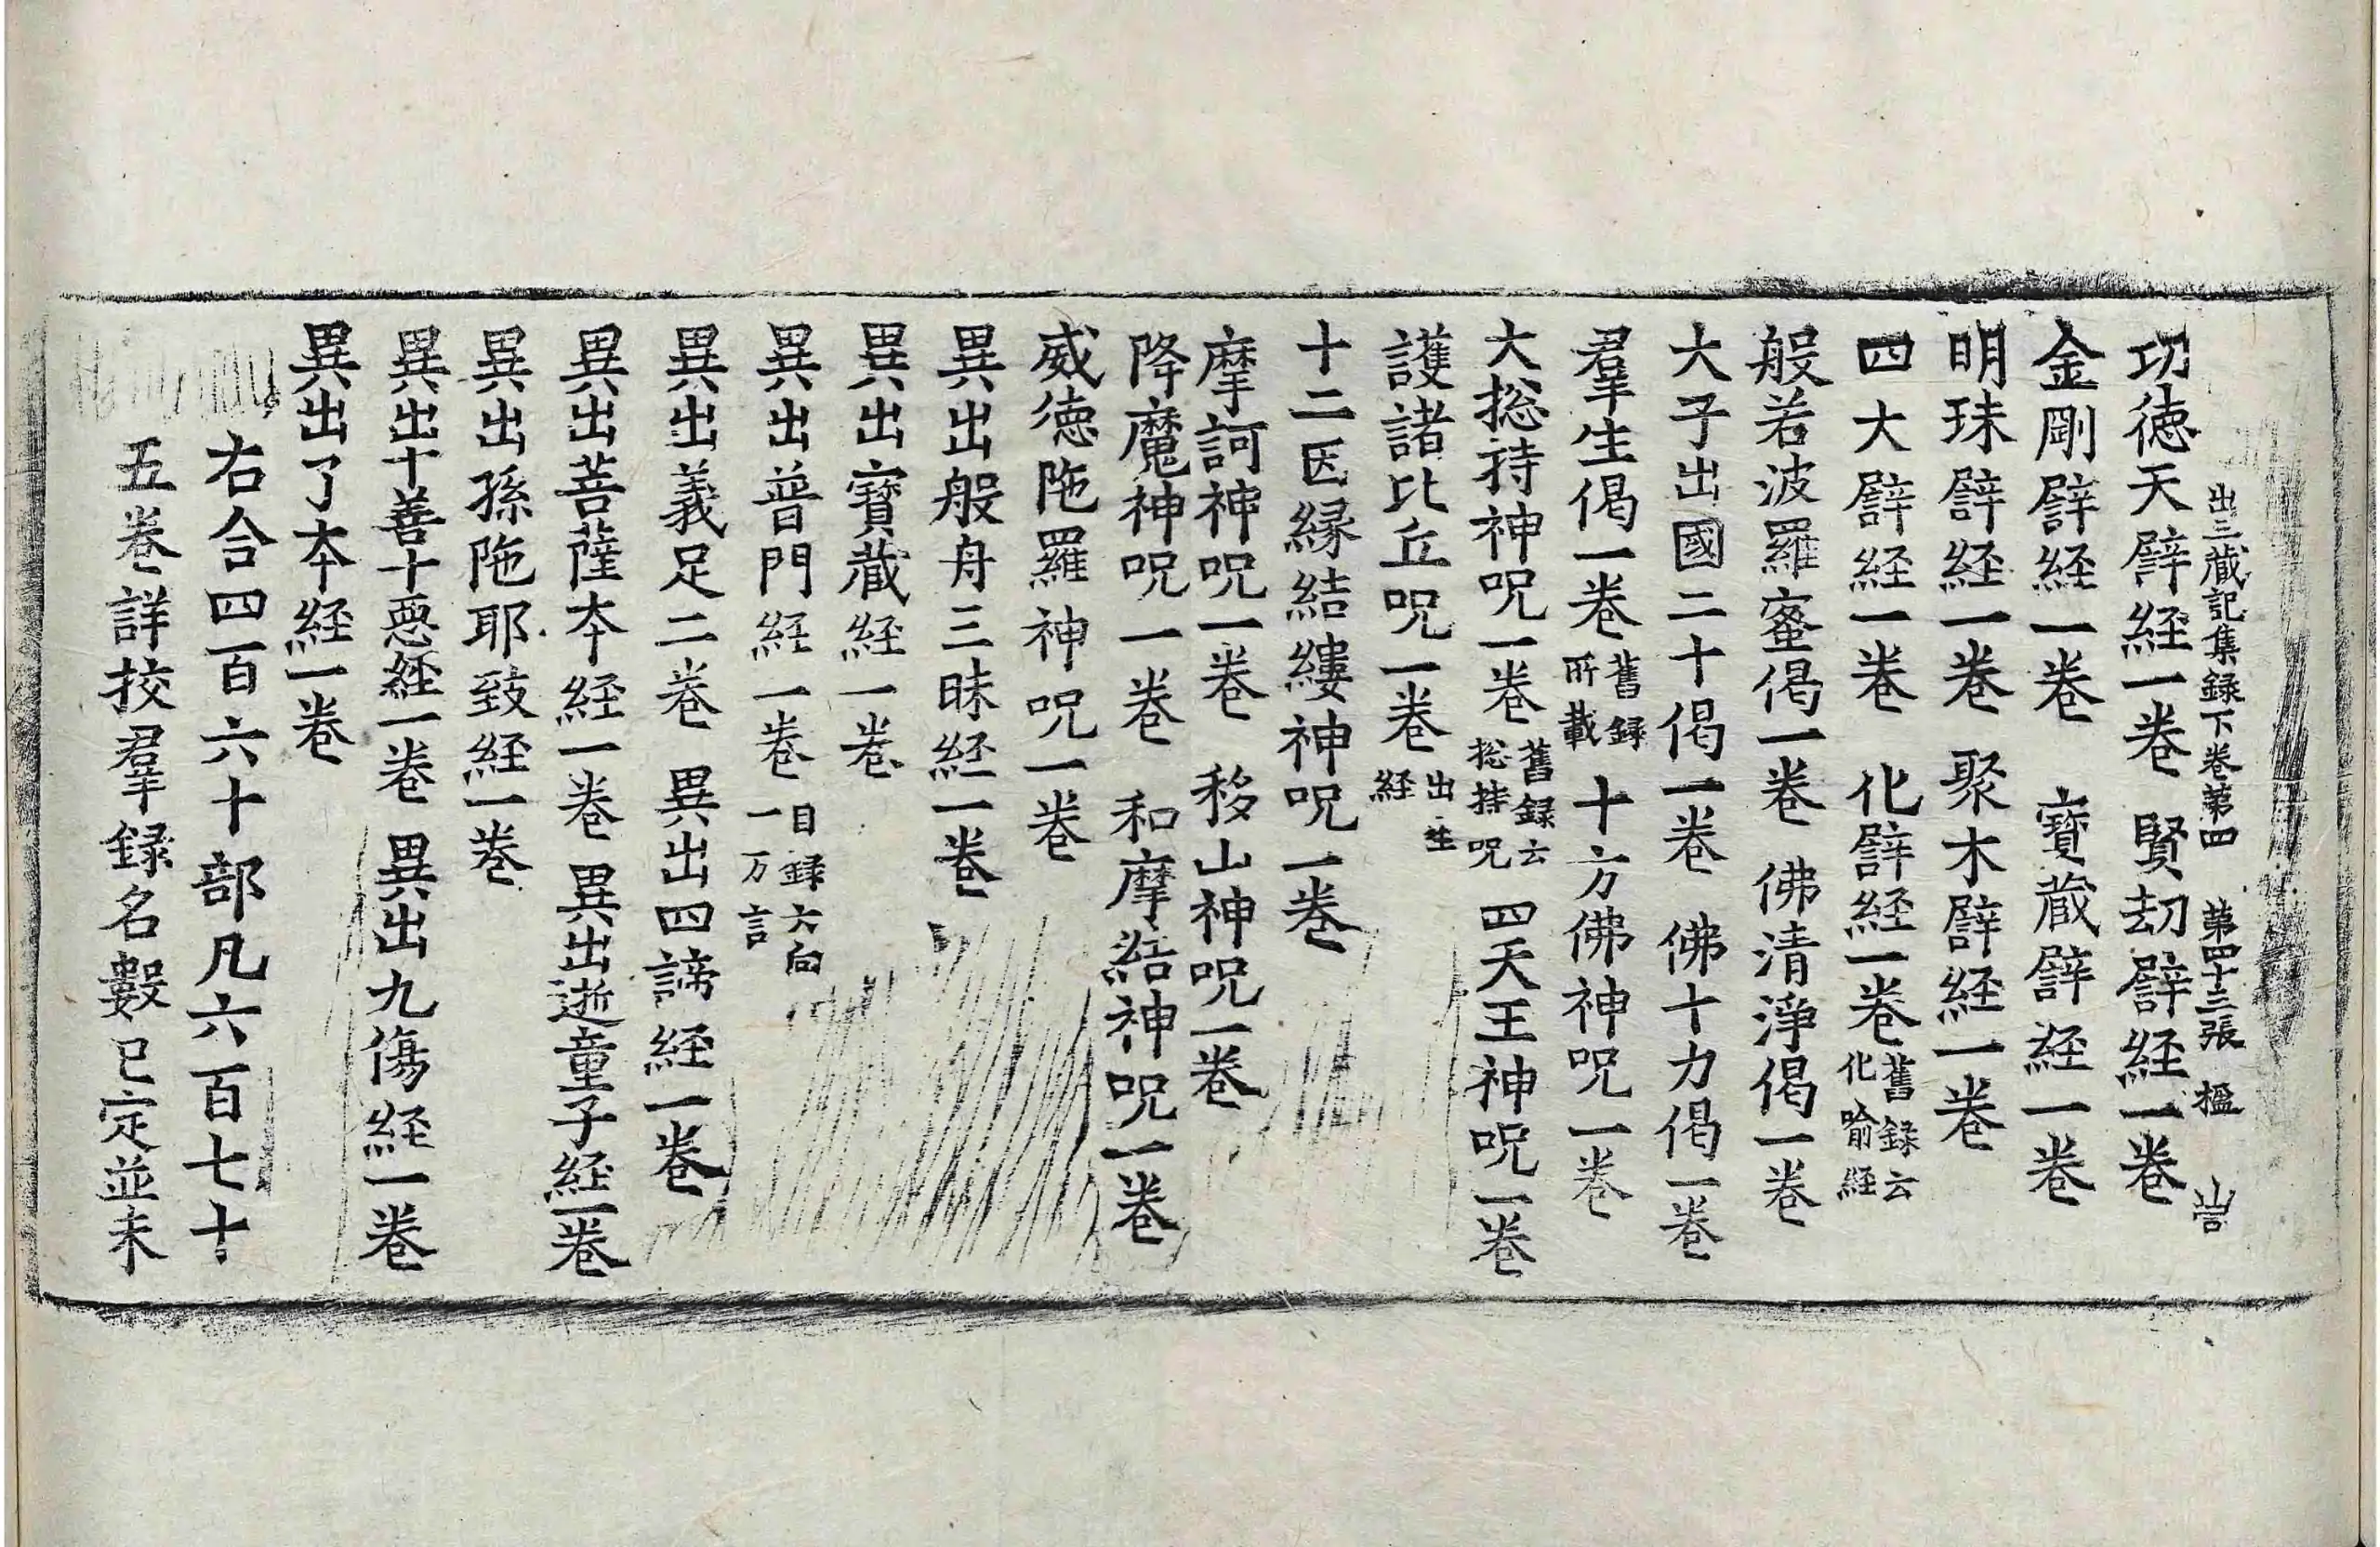 出三藏記集録下卷第四　第四十三張　楹　岩
功徳天譬経一卷　賢刼譬経一卷
金剛譬経一卷　寳蔵譬経一卷
明珠譬経一卷　聚木譬経一卷
四大譬経一卷　化譬経一卷舊録云化喻経
般若波羅蜜偈一卷　佛清浄偈一卷
大子出國二十偈一卷　佛十力偈一卷
羣生偈一卷舊録所載　十方佛神呪一卷
大捴持神呪一卷舊録云捴持呪　四天王神呪一卷
護諸比丘呪一卷出生経
十二因縁結縷神呪一卷
摩訶神呪一卷　移山神呪一卷
降魔神呪一卷　和摩結神呪一卷
威徳陁羅神呪一卷
異出般舟三昧経一卷
異出寳蔵経一卷
異出普門経一卷目録六向一万言
異出義足二卷　異出四諦経一卷
異出菩薩本経一卷　異出逝童子経一卷
異出孫陁耶致経一卷
異出十善十惡経一卷　異出九傷経一卷
異出了本経一卷
右合四百六十部凡六百七十
五卷詳挍羣録名數已定並未